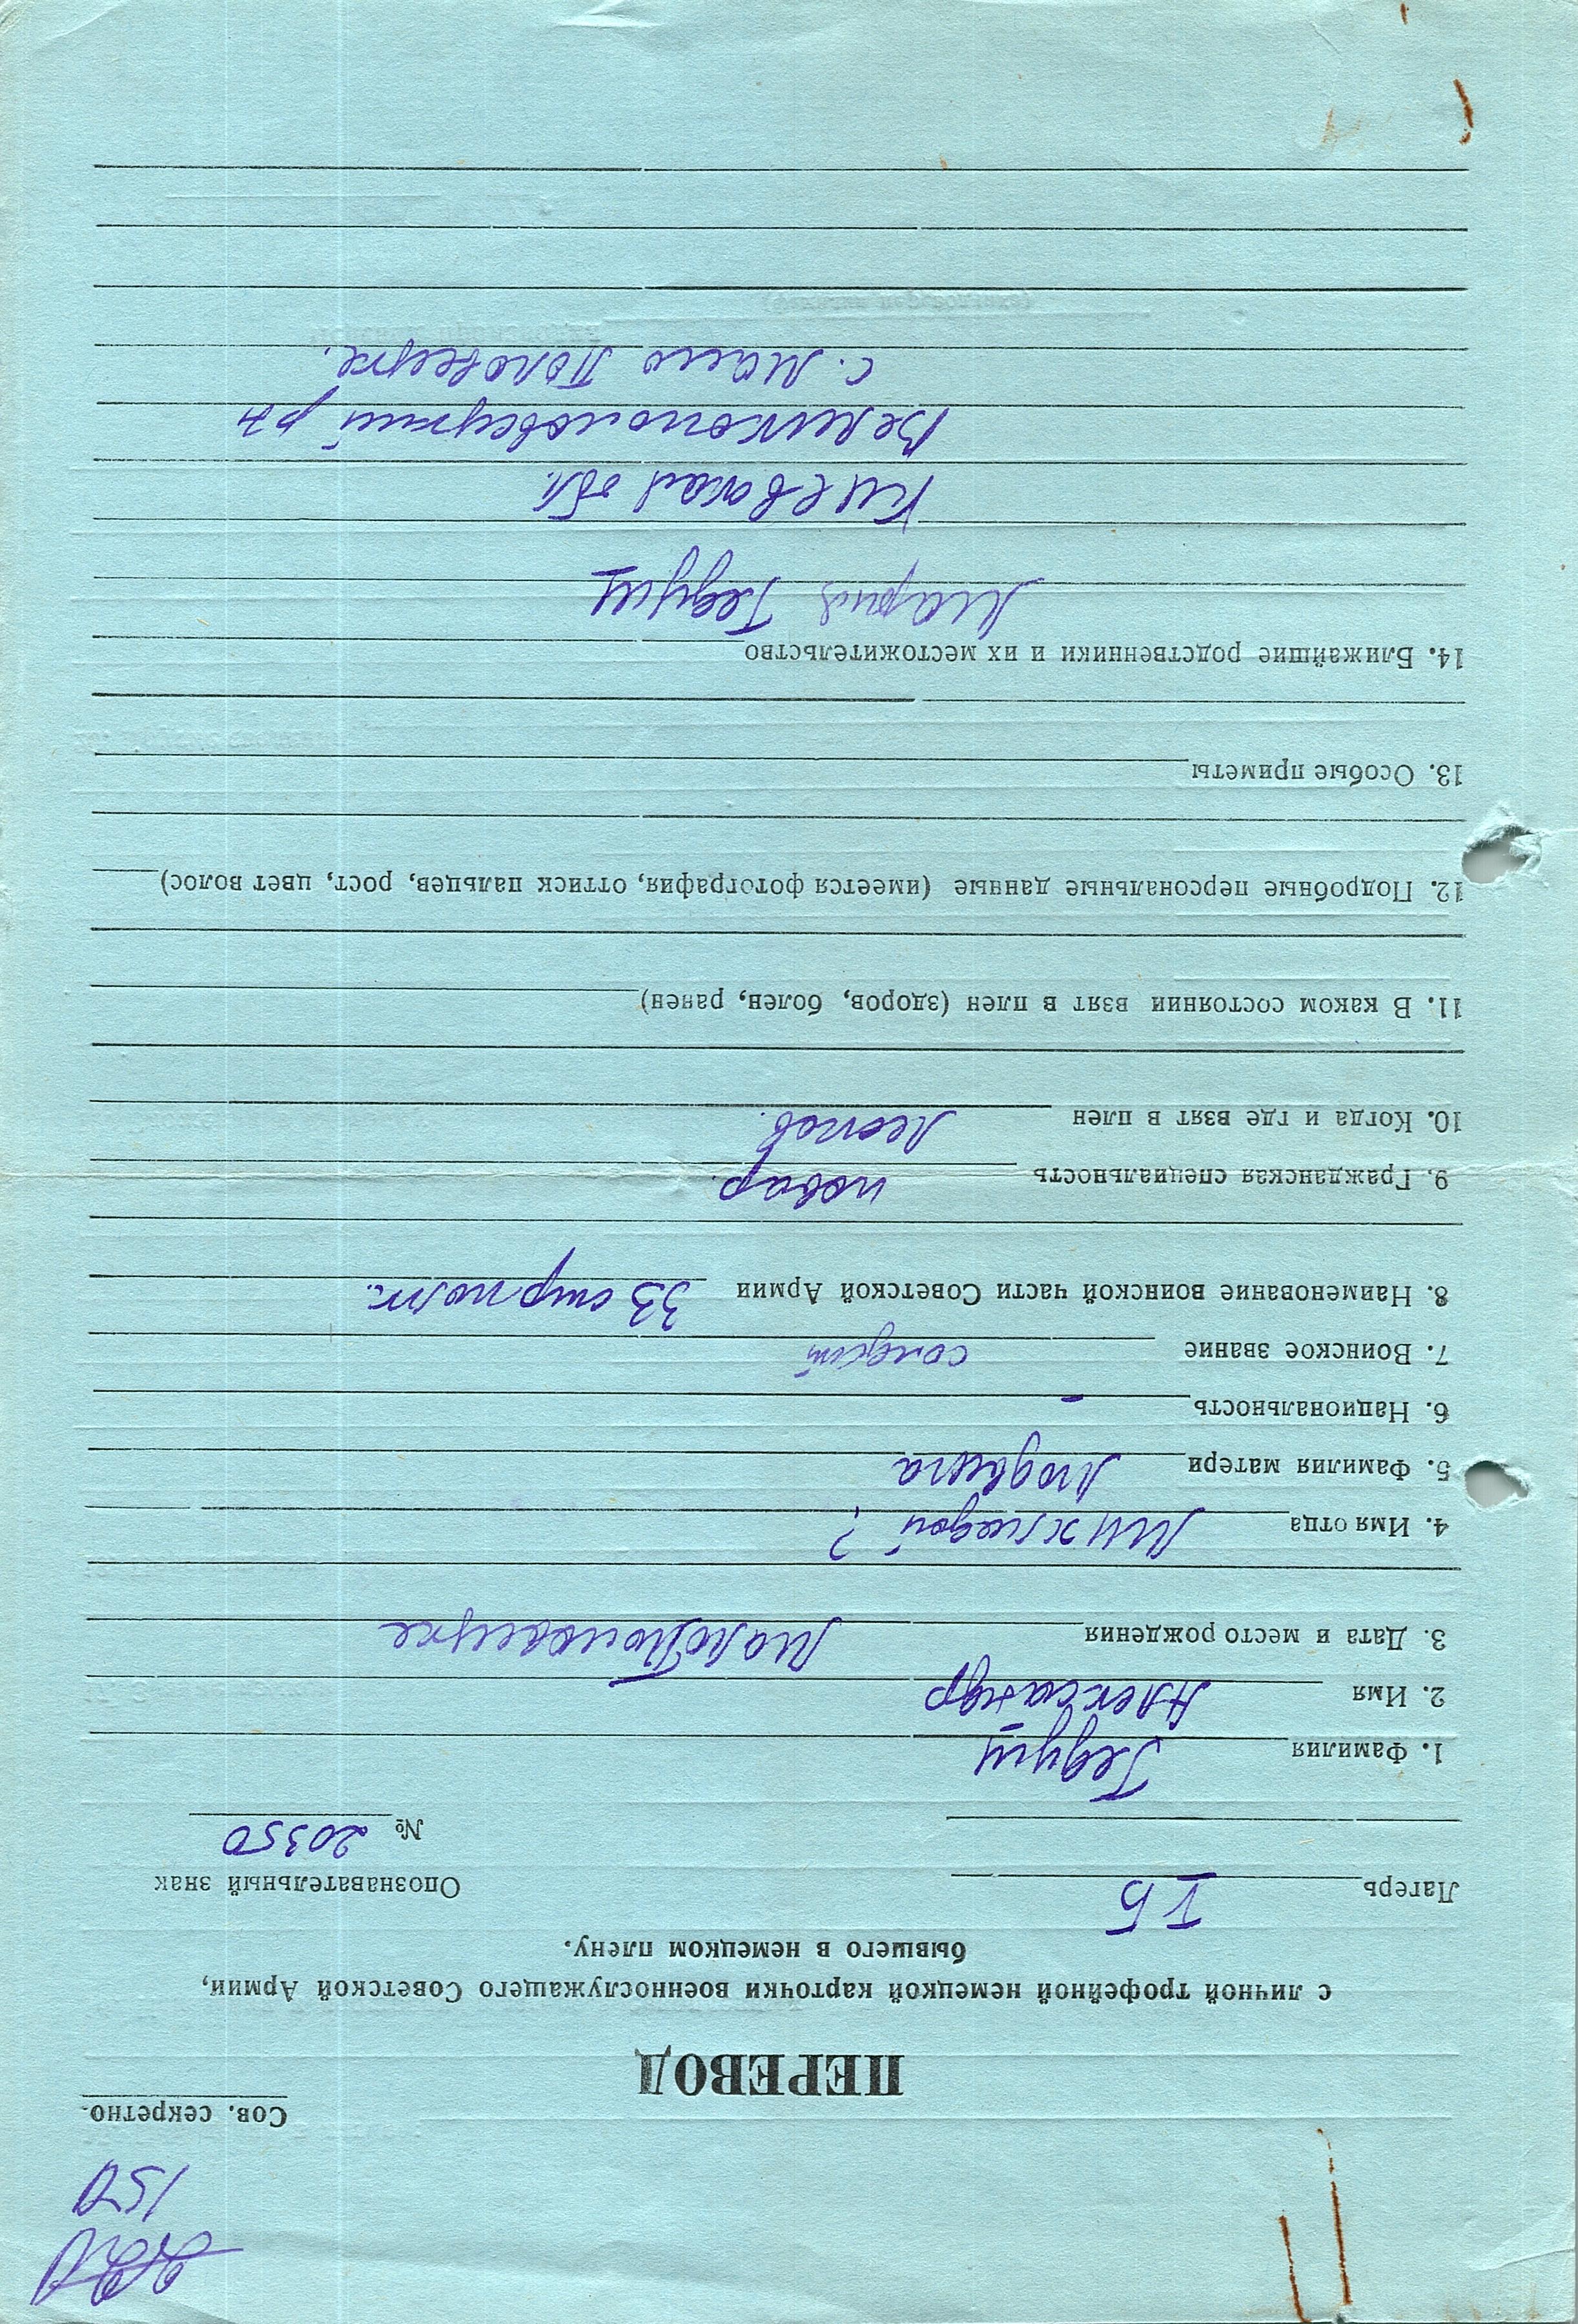 150
Сов. секретно.
ПЕРЕВОД
с личной трофейной немецкой карточки военнослужащего Советской Армии,
бывшего в немецком плену.
Лагерь I Б
Опознавательный знак
№ 20350
1. Фамилия Гедущ
2. Имя Александр
3. Дата и место рождения МалоПоловецке
4. Имя отца
5. Фамилия матери
6. Национальность -
7. Воинское звание солдат
8. Наименование воинской части Советской Армии 33 стр полк.
9. Гражданская специальность повар.
10. Когда и где взят в плен
11. В каком состоянии взят в плен (здоров, болен, ранен)
12. Подробные персональные данные (имеется фотография, оттиск пальцев, рост, цвет волос)
13. Особые приметы
14. Ближайшие родственники и их местожительство
Мария Гедущ
Киевская обл.
Великополовецкий р-н
с. Мало Половецке.